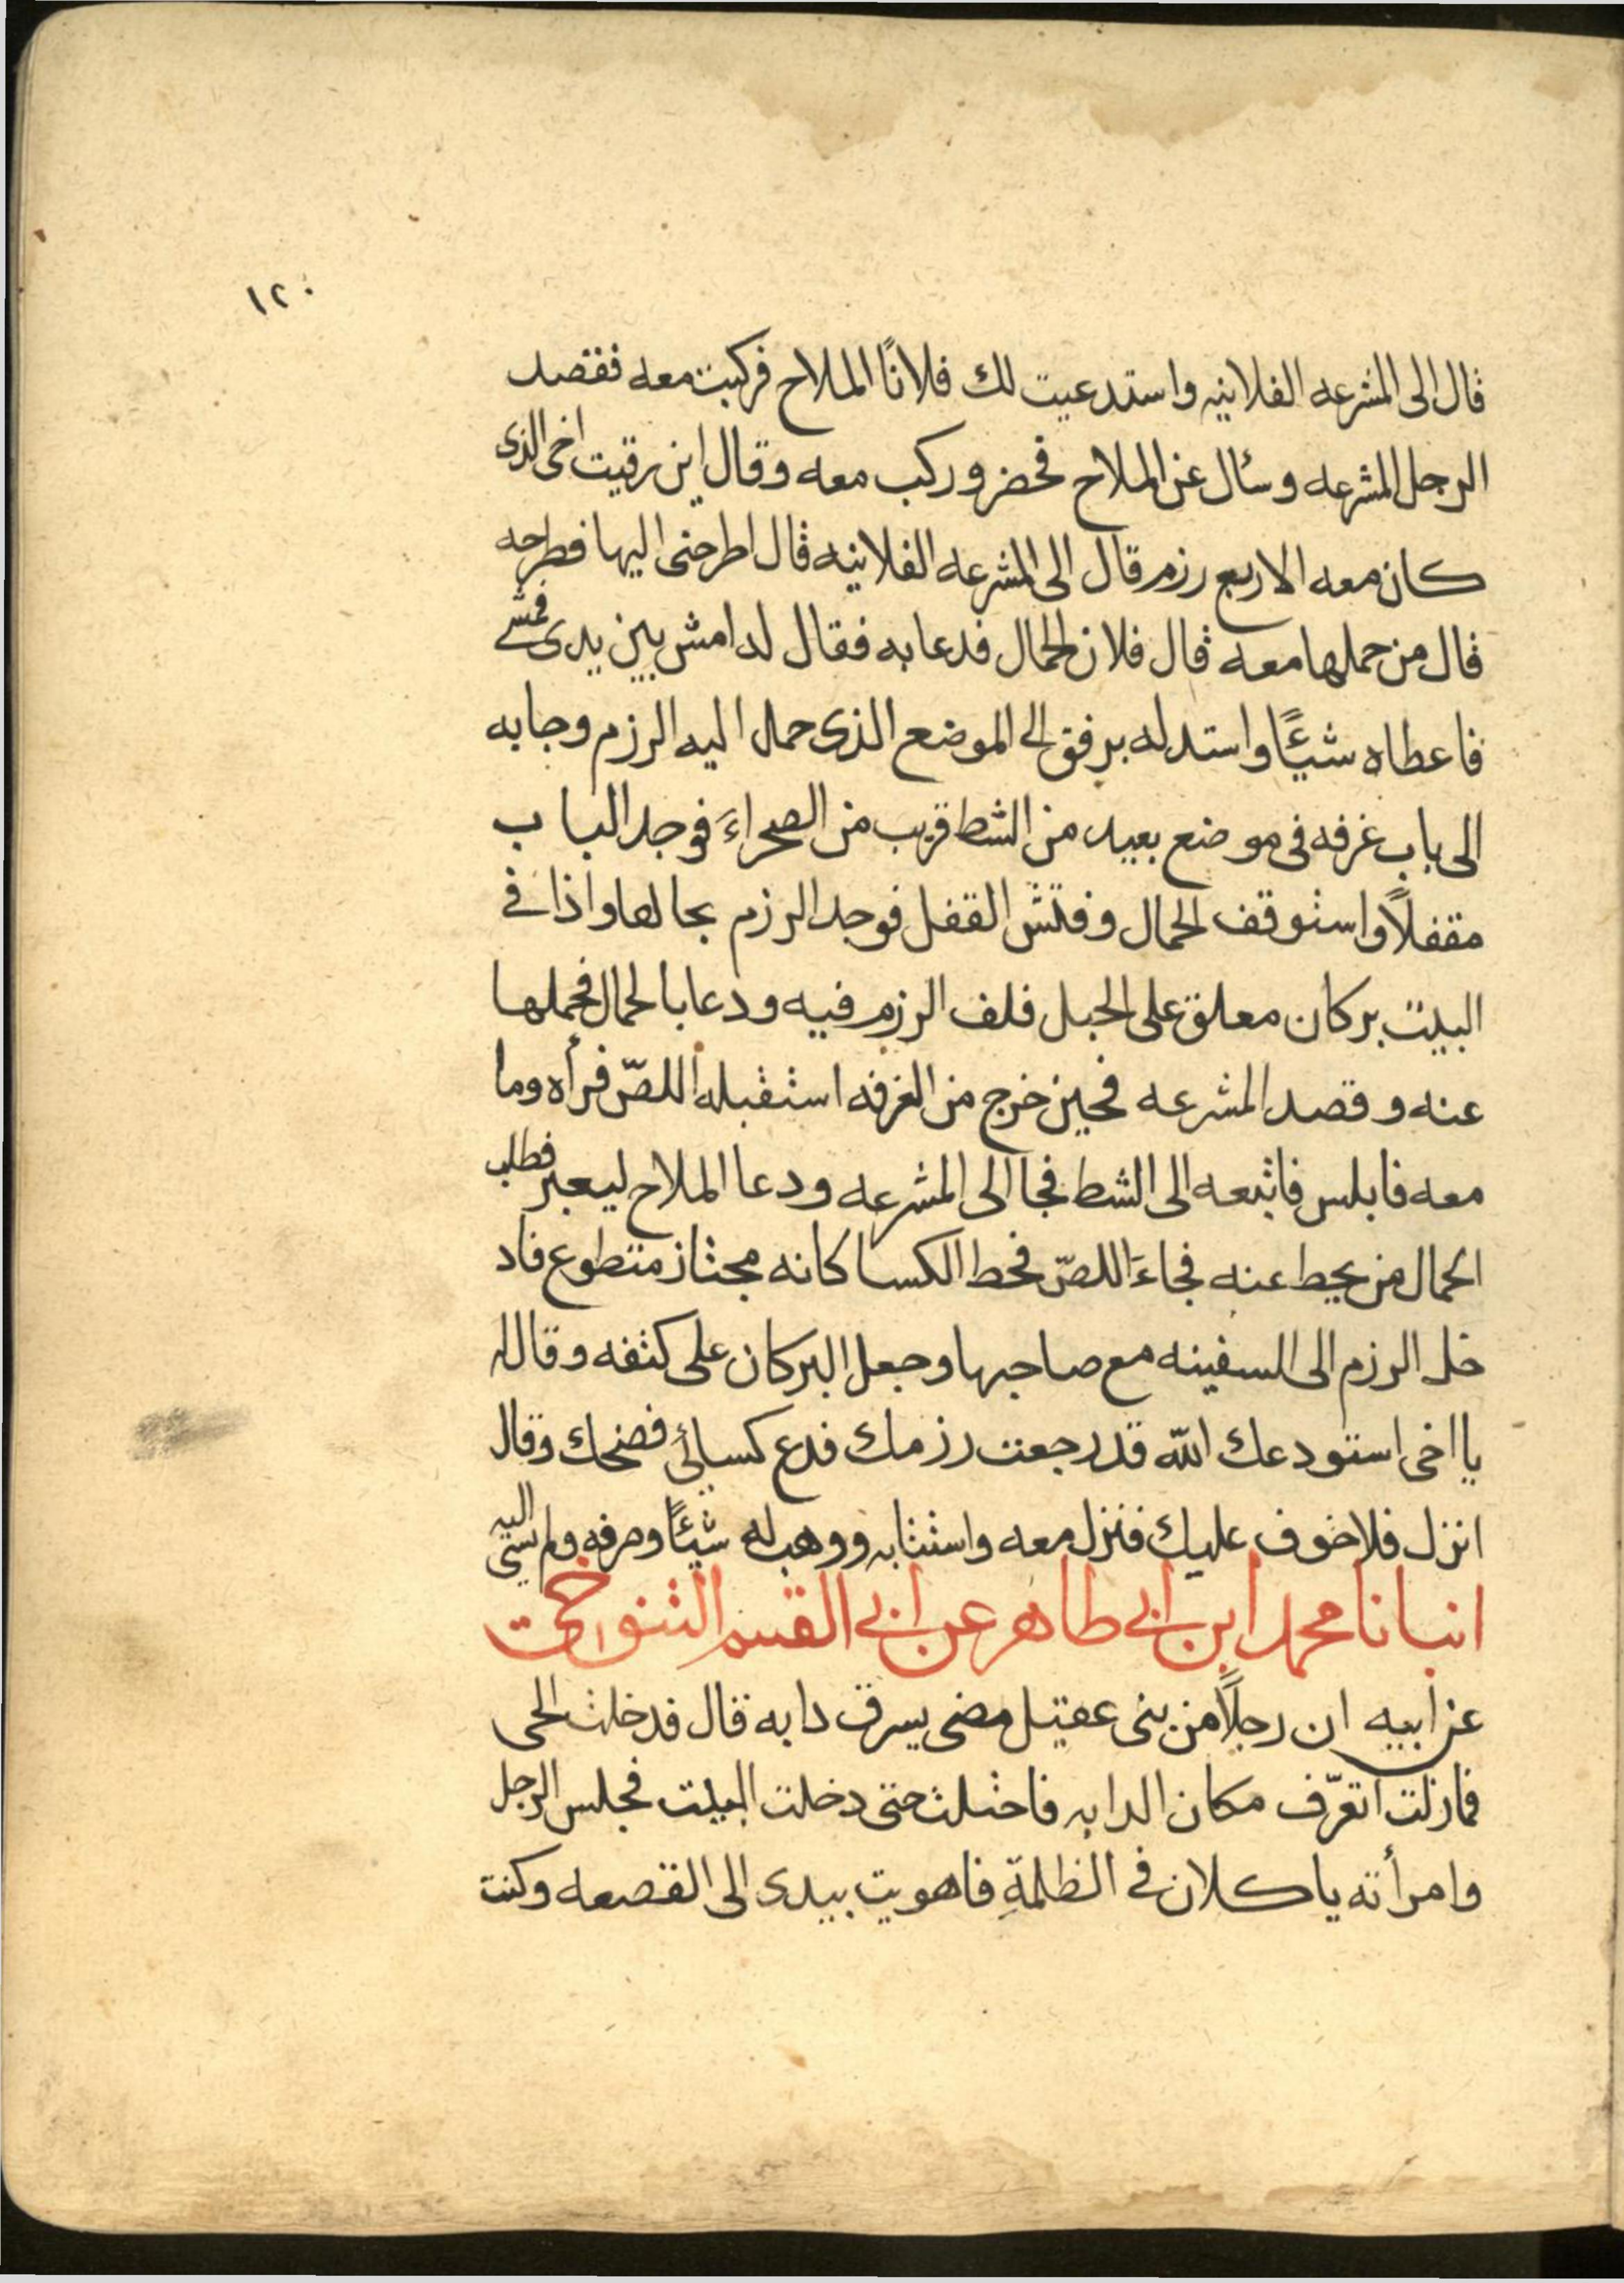 ١٢٠
قال الى المشرعه الفلانيه واستدعيت لك فلانًا الملاح فركبت معه فقصد
الرجل المشرعه وسأل عن الملاح فحضر وركب معه وقال اين رقيت اخى الذى
كان معه الاربع رزم قال الى المشرعه الفلانيه قال اطرحنى اليها فطرحه
قال من حملها معه قال فلان الحمال فدعا به فقال له امش بين يدى فمشى
فاعطاه شيئًا واستدله برفق الى الموضع الذى حمل اليه الرزم وجا به
الى باب غرفه فى موضع بعيد من الشط قريب من الصحراءَ فوجد الباب
مقفلاً واستوقف الحمال وفتش القفل فوجد الرزم بحالها واذا فى
البيت بركان معلق على الحبل فلف الرزم فيه ودعا بالحمال فحملها
عنه وقصد المشرعه فحين خرج من الغرفه استقبله اللصّ فرأه وما
معه فابلس فاتبعه الى الشط فجا الى المشرعه ودعا الملاح ليعبر فطلب
الحمال من يحط عنه فجاءَ اللصّ فحط الكسا كانه مجتاز متطوع فاد
خل الرزم الى السفينه مع صاحبها وجعل البركان على كتفه وقال له
يا اخى استودعك الله قد رجعت رزمك فدع كسائى فضحك وقال
انزل فلا خوف عليك فنزل معه واستتابه ووهب له شيئًا وصرفه ولم يسئ اليه
انبانا محمد ابن ابى طاهر عن ابى القسم التنوخى
عن ابيه ان رجلًا من بنى عقيل مضى يسرق دابه قال فدخلت الحى
فما زلت اتعرّف مكان الدابه فاحتلت حتى دخلت البيت فجلس الرجل
وامرأته ياكلان فى الظلمةِ فاهويت بيدى الى القصعه وكنت